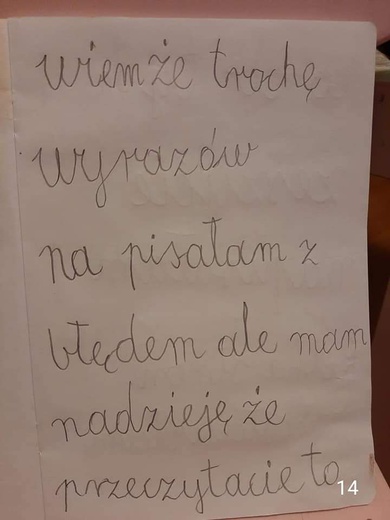 wiem że trochę
wyrazów
na pisałam z
błędem ale mam
nadzieję że
przeczytacie to
14